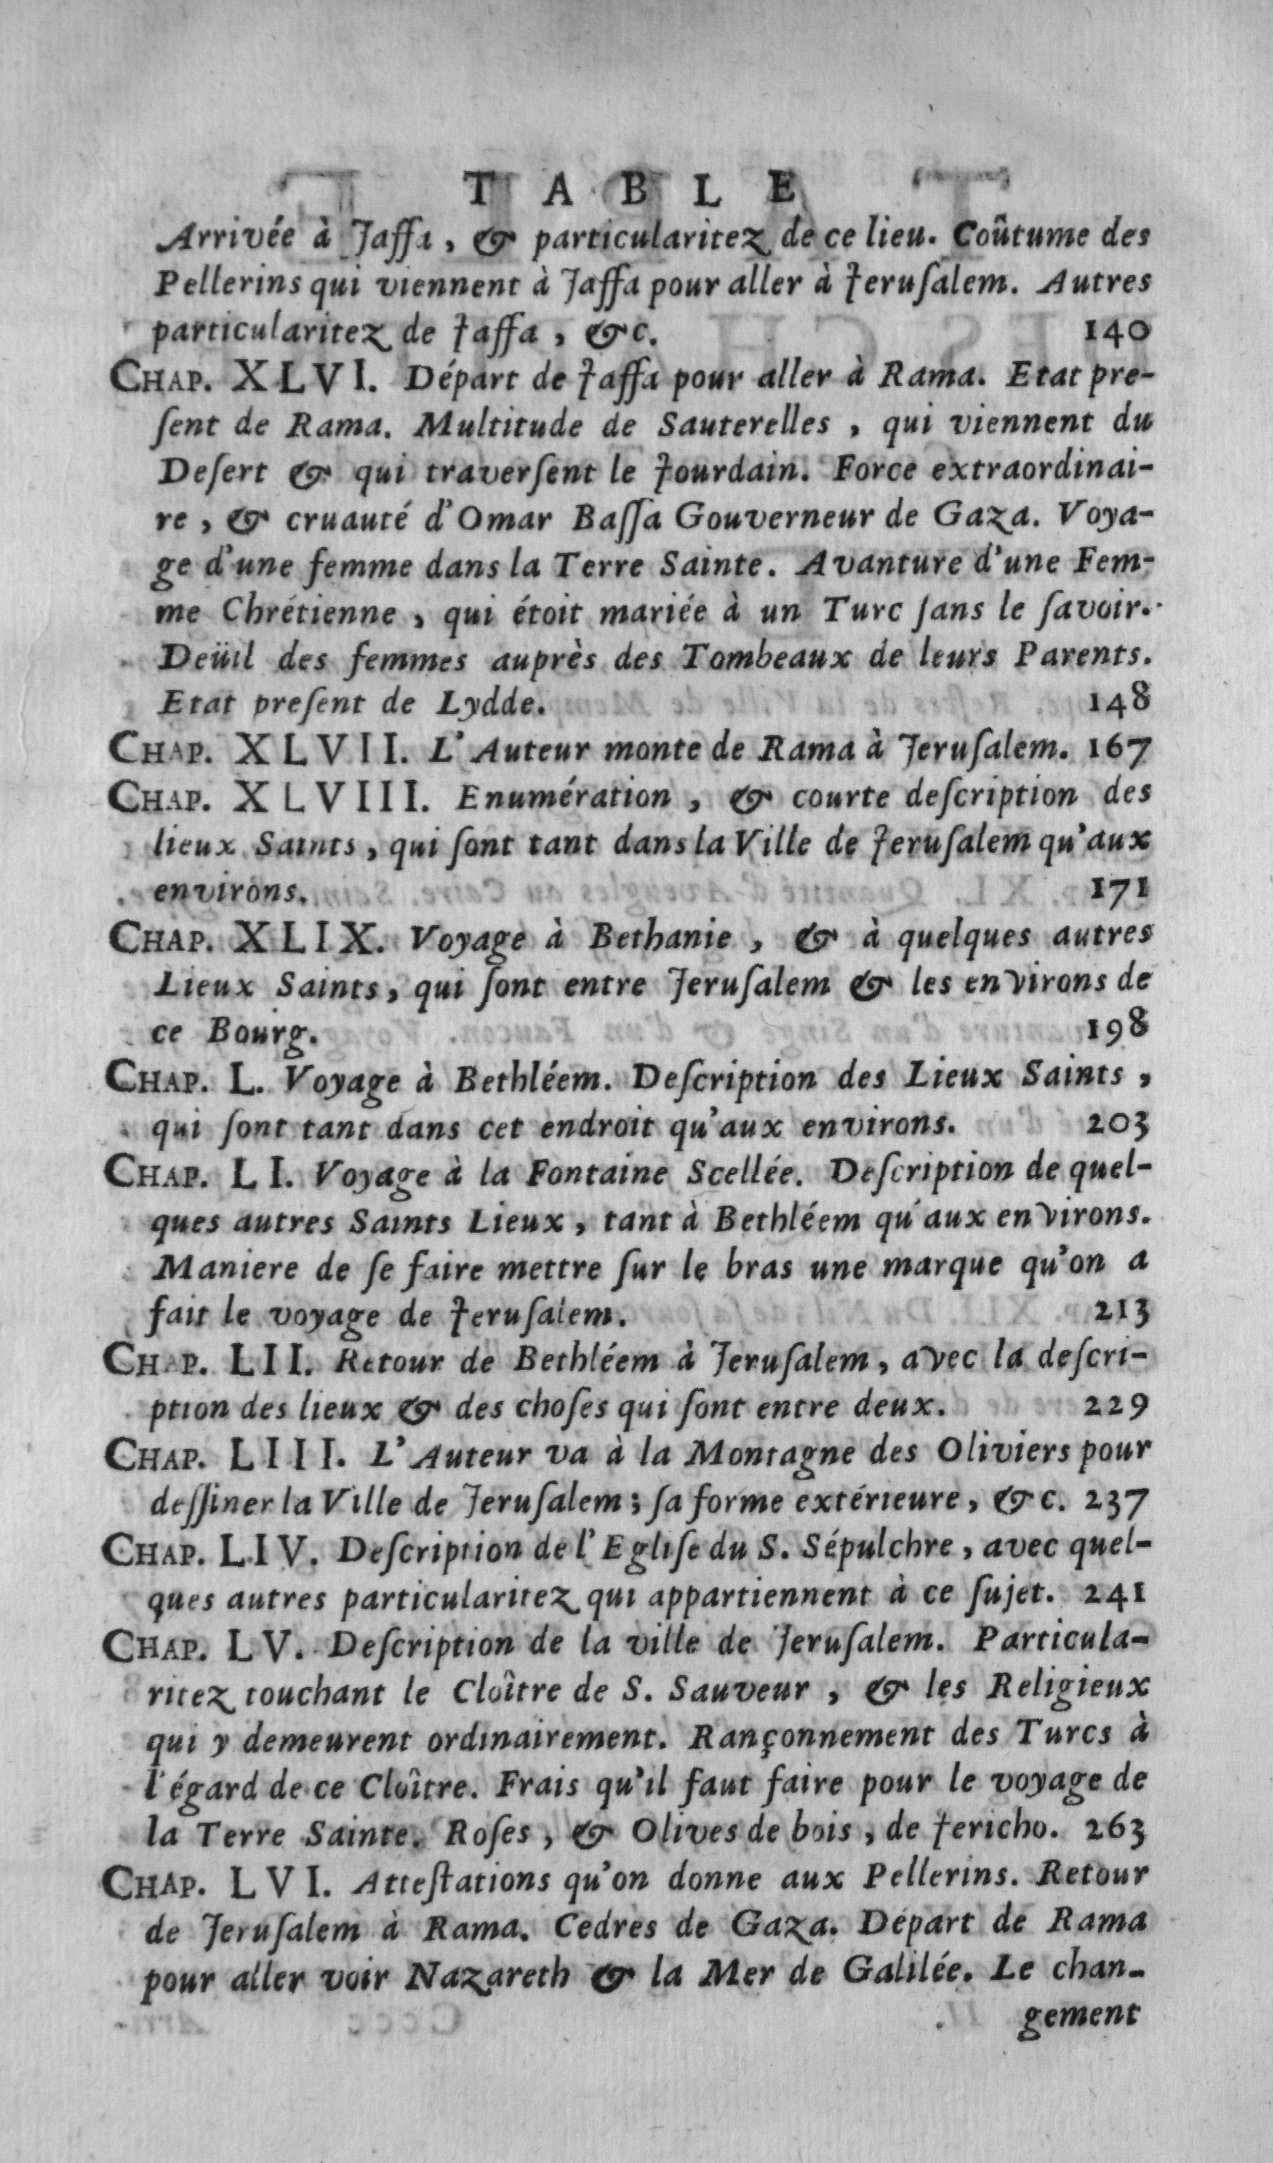 TABLE
Arrivée à Jaffa, & particularitez de ce lieu. Coûtume des
Pellerins qui viennent à Jaffa pour aller à Jeruſalem. Autres
particularitez de Jaffa, &c. 140
CHAP. XLVI. Départ de Jaffa pour aller à Rama. Etat pre-
ſent de Rama. Multitude de Sauterelles, qui viennent du
Deſert & qui traverſent le Jourdain. Force extraordinai-
re, & cruauté d'Omar Baſſa Gouverneur de Gaza. Voya-
ge d'une femme dans la Terre Sainte. Avanture d'une Fem-
me Chrétienne, qui étoit mariée à un Turc ſans le ſavoir.
Deüil des femmes auprès des Tombeaux de leurs Parents.
Etat preſent de Lydde. 148
CHAP. XLVII. L'Auteur monte de Rama à Jeruſalem. 167
CHAP. XLVIII. Enumération, & courte deſcription des
lieux Saints, qui ſont tant dans la Ville de Jeruſalem qu'aux
environs. 171
CHAP. XLIX. Voyage à Bethanie, & à quelques autres
Lieux Saints, qui ſont entre Jeruſalem & les environs de
ce Bourg. 198
CHAP. L. Voyage à Bethléem. Deſcription des Lieux Saints,
qui ſont tant dans cet endroit qu'aux environs. 203
CHAP. LI. Voyage à la Fontaine Scellée. Deſcription de quel-
ques autres Saints Lieux, tant à Bethléem qu'aux environs.
Maniere de ſe faire mettre ſur le bras une marque qu'on a
fait le voyage de Jeruſalem. 213
CHAP. LII. Retour de Bethléem à Jeruſalem, avec la deſcri-
ption des lieux & des choſes qui ſont entre deux. 229
CHAP. LIII. L'Auteur va à la Montagne des Oliviers pour
deſſiner la Ville de Jeruſalem; ſa forme extérieure, &c. 237
CHAP. LIV. Deſcription de l'Egliſe du S. Sépulchre, avec quel-
ques autres particularitez qui appartiennent à ce ſujet. 241
CHAP. LV. Deſcription de la ville de Jeruſalem. Particula-
ritez touchant le Cloître de S. Sauveur, & les Religieux
qui y demeurent ordinairement. Rançonnement des Turcs à
l'égard de ce Cloître. Frais qu'il faut faire pour le voyage de
la Terre Sainte. Roſes, & Olives de bois, de Jericho. 263
CHAP. LVI. Atteſtations qu'on donne aux Pellerins. Retour
de Jeruſalem à Rama. Cedres de Gaza. Départ de Rama
pour aller voir Nazareth & la Mer de Galilée. Le chan-
gement